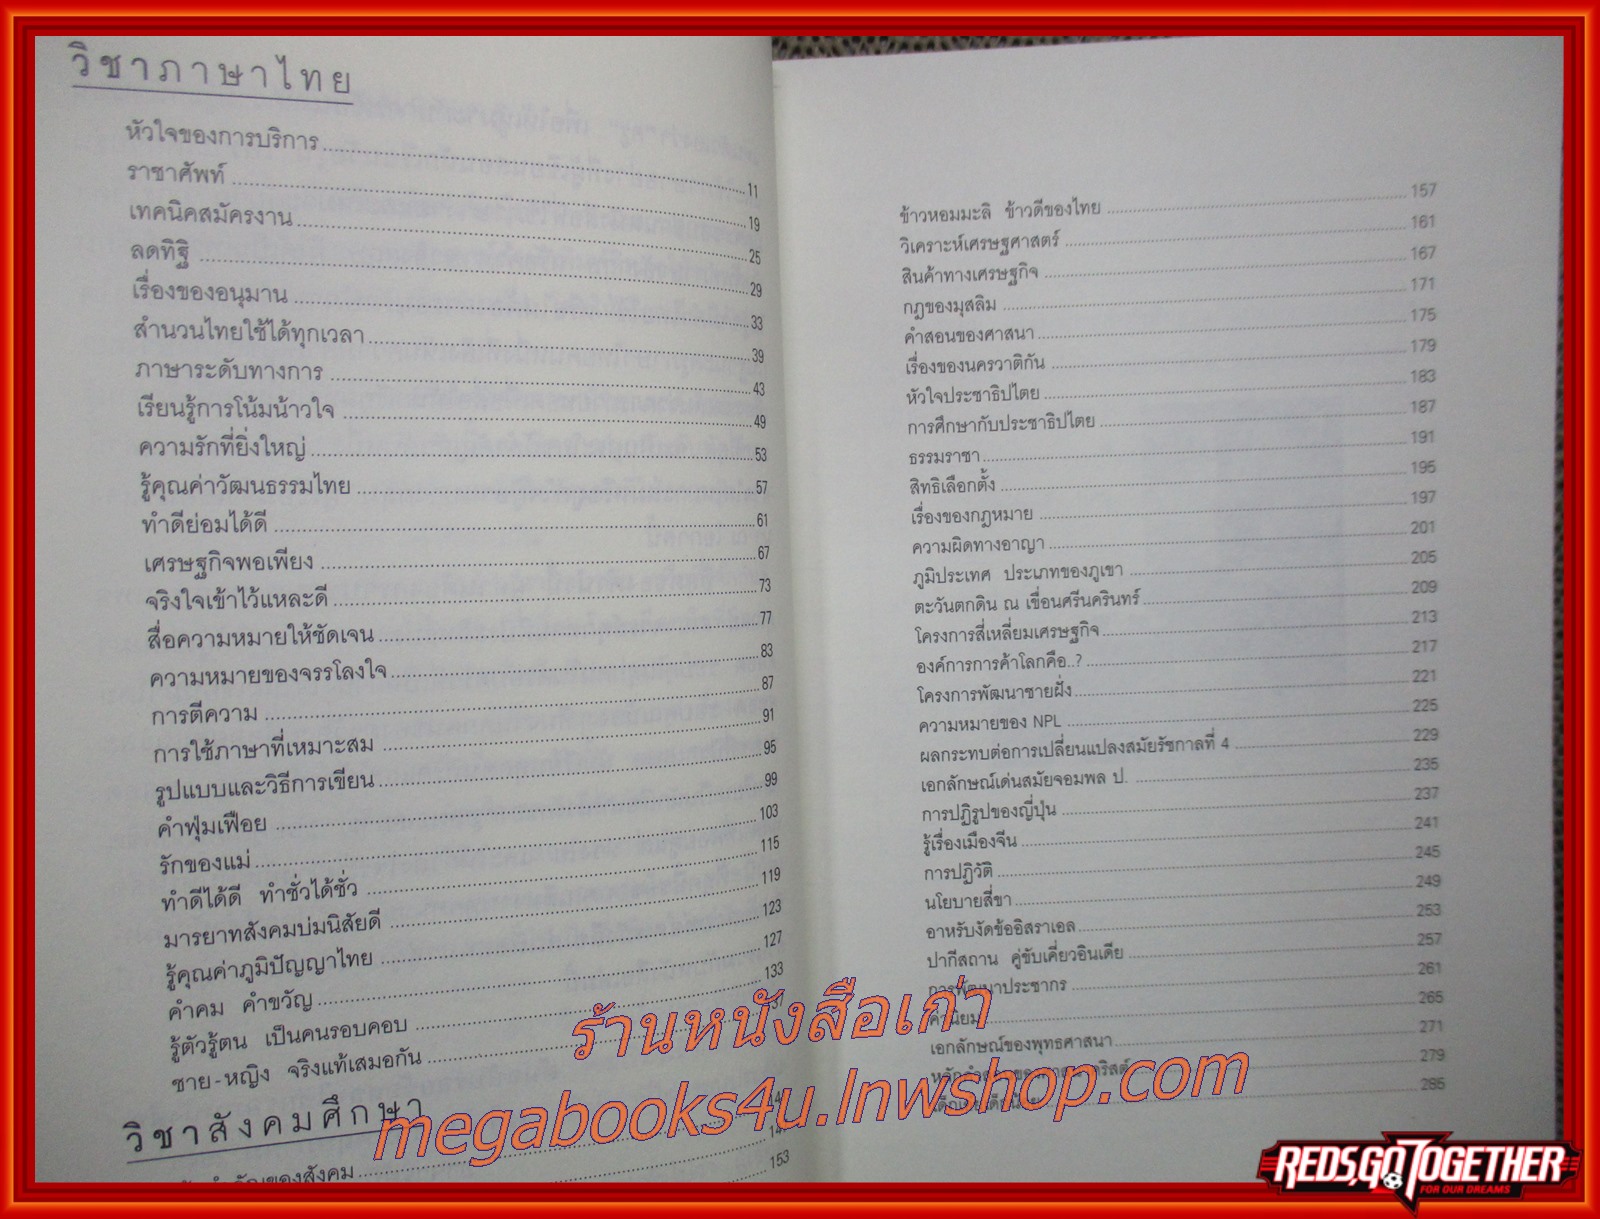 วิชาภาษาไทย
หัวใจของการบริการ 11
ราชาศัพท์ 19
เทคนิคสมัครงาน 25
ลดทิฐิ 29
เรื่องของอนุมาน 33
สำนวนไทยใช้ได้ทุกเวลา 39
ภาษาระดับทางการ 43
เรียนรู้การโน้มน้าวใจ 49
ความรักที่ยิ่งใหญ่ 53
รู้คุณค่าวัฒนธรรมไทย 57
ทำดีย่อมได้ดี 61
เศรษฐกิจพอเพียง 67
จริงใจเข้าไว้แหละดี 73
สื่อความหมายให้ชัดเจน 77
ความหมายของจรรโลงใจ 83
การตีความ 87
การใช้ภาษาที่เหมาะสม 91
รูปแบบและวิธีการเขียน 95
คำฟุ่มเฟือย 99
รักของแม่ 103
ทำดีได้ดี ทำชั่วได้ชั่ว 115
มารยาทสังคมบ่มนิสัยดี 119
รู้คุณค่าภูมิปัญญาไทย 123
คำคม คำขวัญ 127
รู้ตัวรู้ตน เป็นคนรอบคอบ 133
ชาย-หญิง จริงแท้เสมอกัน
วิชาสังคมศึกษา
ของสังคม 153
ข้าวหอมมะลิ ข้าวดีของไทย 157
วิเคราะห์เศรษฐศาสตร์ 161
สินค้าทางเศรษฐกิจ 167
กฎของมุสลิม 171
คำสอนของศาสนา 175
เรื่องของนครวาติกัน 179
หัวใจประชาธิปไตย 183
การศึกษากับประชาธิปไตย 187
ธรรมราชา 191
สิทธิเลือกตั้ง 195
เรื่องของกฎหมาย 197
ความผิดทางอาญา 201
ภูมิประเทศ ประเภทของภูเขา 205
ตะวันตกดิน ณ เขื่อนศรีนครินทร์ 209
โครงการสี่เหลี่ยมเศรษฐกิจ 213
องค์การการค้าโลกคือ..? 217
โครงการพัฒนาชายฝั่ง 221
ความหมายของ NPL 225
ผลกระทบต่อการเปลี่ยนแปลงสมัยรัชกาลที่ 4 229
เอกลักษณ์เด่นสมัยจอมพล ป. 235
การปฏิรูปของญี่ปุ่น 237
รู้เรื่องเมืองจีน 241
การปฏิวัติ 245
นโยบายสี่ขา 249
อาหรับงัดข้ออิสราเอล 253
ปากีสถาน คู่ขับเคี่ยวอินเดีย 257
การพัฒนาประชากร 261
ค่านิยม 265
เอกลักษณ์ของพุทธศาสนา 271
279
285
ร้านหนังสือเก่า
megabooks4u.lnwshop.com
REDS,GO TOGETHER
FOR OUR DREAMS